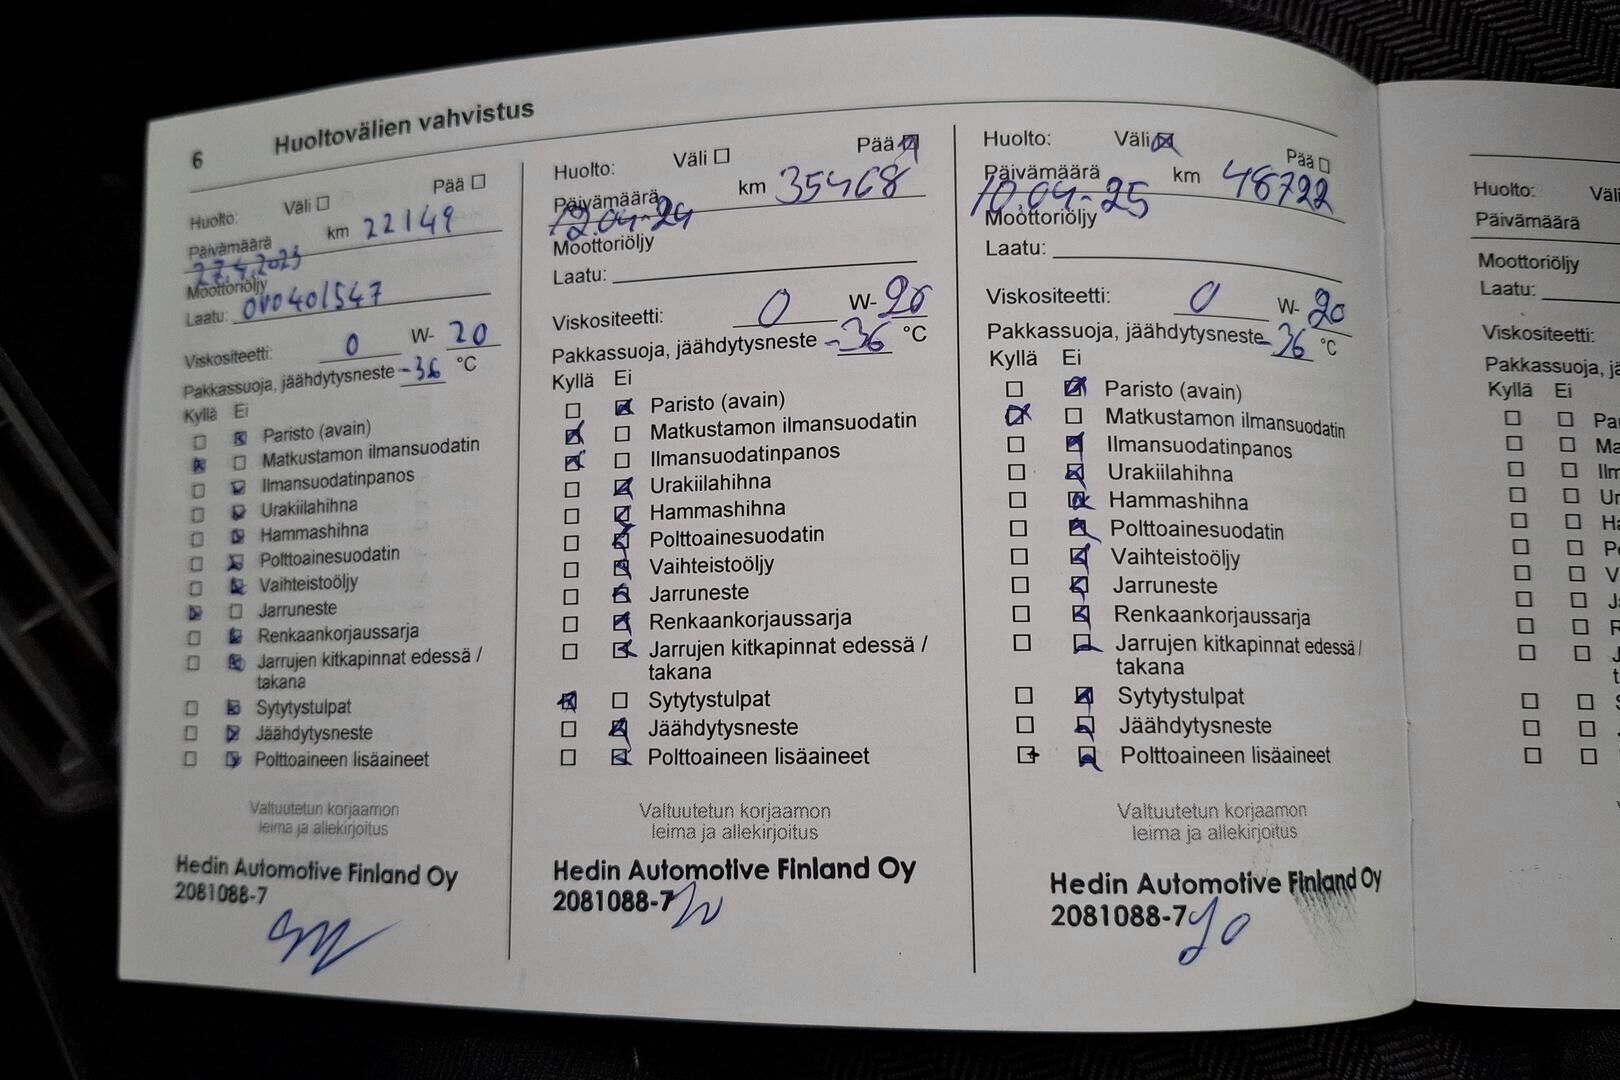 6 Huoltovälien vahvistus
Huolto: Väli ☐ Pää ☐
Päivämäärä km 22149
27.4.2023
Moottoriöljy
Laatu: 0V0401547
Viskositeetti: 0 W- 20
Pakkassuoja, jäähdytysneste -36 °C
Kyllä Ei
☐ ☒ Paristo (avain)
☒ ☐ Matkustamon ilmansuodatin
☐ ☒ Ilmansuodatinpanos
☐ ☒ Urakiilahihna
☐ ☒ Hammashihna
☐ ☒ Polttoainesuodatin
☐ ☒ Vaihteistoöljy
☒ ☐ Jarruneste
☐ ☒ Renkaankorjaussarja
☐ ☒ Jarrujen kitkapinnat edessä /
takana
☐ ☒ Sytytystulpat
☐ ☒ Jäähdytysneste
☐ ☒ Polttoaineen lisäaineet
Valtuutetun korjaamon
leima ja allekirjoitus
Hedin Automotive Finland Oy
2081088-7
Huolto: Väli ☐ Pää ☒
Päivämäärä km 35468
12.04-24
Moottoriöljy
Laatu:
Viskositeetti: 0 W- 20
Pakkassuoja, jäähdytysneste -36 °C
Kyllä Ei
☐ ☒ Paristo (avain)
☒ ☐ Matkustamon ilmansuodatin
☒ ☐ Ilmansuodatinpanos
☐ ☒ Urakiilahihna
☐ ☒ Hammashihna
☐ ☒ Polttoainesuodatin
☐ ☒ Vaihteistoöljy
☐ ☒ Jarruneste
☐ ☒ Renkaankorjaussarja
☐ ☒ Jarrujen kitkapinnat edessä /
takana
☒ ☐ Sytytystulpat
☐ ☒ Jäähdytysneste
☐ ☒ Polttoaineen lisäaineet
Valtuutetun korjaamon
leima ja allekirjoitus
Hedin Automotive Finland Oy
2081088-7
Huolto: Väli ☒ Pää ☐
Päivämäärä km 48722
10.04-25
Moottoriöljy
Laatu:
Viskositeetti: 0 W- 20
Pakkassuoja, jäähdytysneste -36 °C
Kyllä Ei
☐ ☒ Paristo (avain)
☒ ☐ Matkustamon ilmansuodatin
☐ ☒ Ilmansuodatinpanos
☐ ☒ Urakiilahihna
☐ ☒ Hammashihna
☐ ☒ Polttoainesuodatin
☐ ☒ Vaihteistoöljy
☐ ☒ Jarruneste
☐ ☒ Renkaankorjaussarja
☐ ☒ Jarrujen kitkapinnat edessä /
takana
☐ ☒ Sytytystulpat
☐ ☒ Jäähdytysneste
☐ ☒ Polttoaineen lisäaineet
Valtuutetun korjaamon
leima ja allekirjoitus
Hedin Automotive Finland Oy
2081088-7
Huolto:
Päivämäärä
Moottoriöljy
Laatu:
Viskositeetti:
Pakkassuoja,
Kyllä Ei